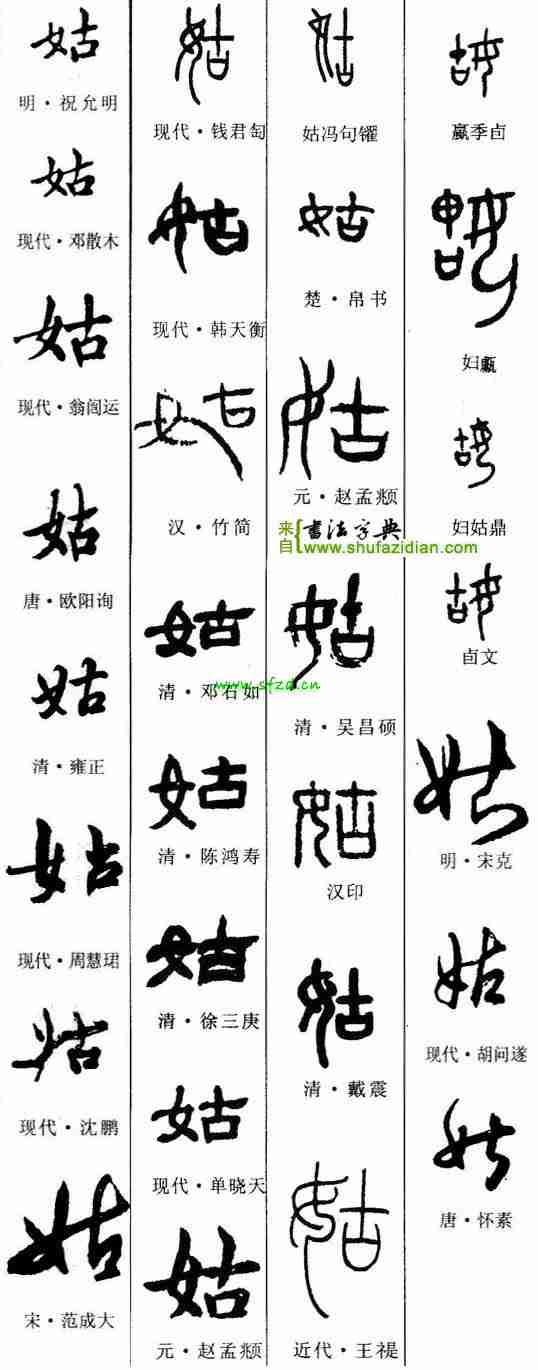 姑
明·祝允明
姑
现代·邓散木
姑
现代·翁闿运
姑
唐·欧阳询
姑
清·雍正
姑
现代·周慧珺
姑
现代·沈鹏
姑
宋·范成大
姑
现代·钱君匋
姑
现代·韩天衡
姑
汉·竹简
姑
清·邓石如
www.sfzd.cn
姑
清·陈鸿寿
姑
清·徐三庚
姑
现代·单晓天
姑
元·赵孟頫
姑
姑冯句鑃
姑
楚·帛书
姑
元·赵孟頫
来自{书法字典
www.shufazidian.com
姑
清·吴昌硕
姑
汉印
姑
清·戴震
姑
近代·王禔
姑
嬴季卣
姑
妇甗
姑
妇姑鼎
姑
卣文
姑
明·宋克
姑
现代·胡问遂
姑
唐·怀素